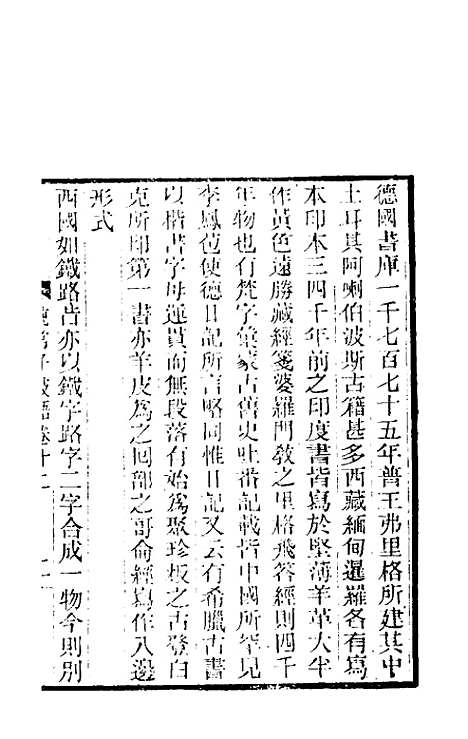 德國書庫一千七百七十五年普王弗里格所建其中
土耳其阿喇伯波斯古籍甚多西藏緬甸暹羅各有寫
本印本三四千年前之印度書皆寫於堅薄羊革大半
作黃色遠勝藏經箋婆羅門教之里格飛答經則四千
年物也有梵字彙蒙古舊史吐番記載皆中國所罕見
李鳳苞使德日記所言略同惟日記又云有希臘古書
以楷書字母連貫而無段落有始為聚珍板之古登白
克所印第一書亦羊皮為之回部之哥侖經寫作八邊
形式
西國如鐵路古亦以鐵字路字二字合成一物今則別
卷十二